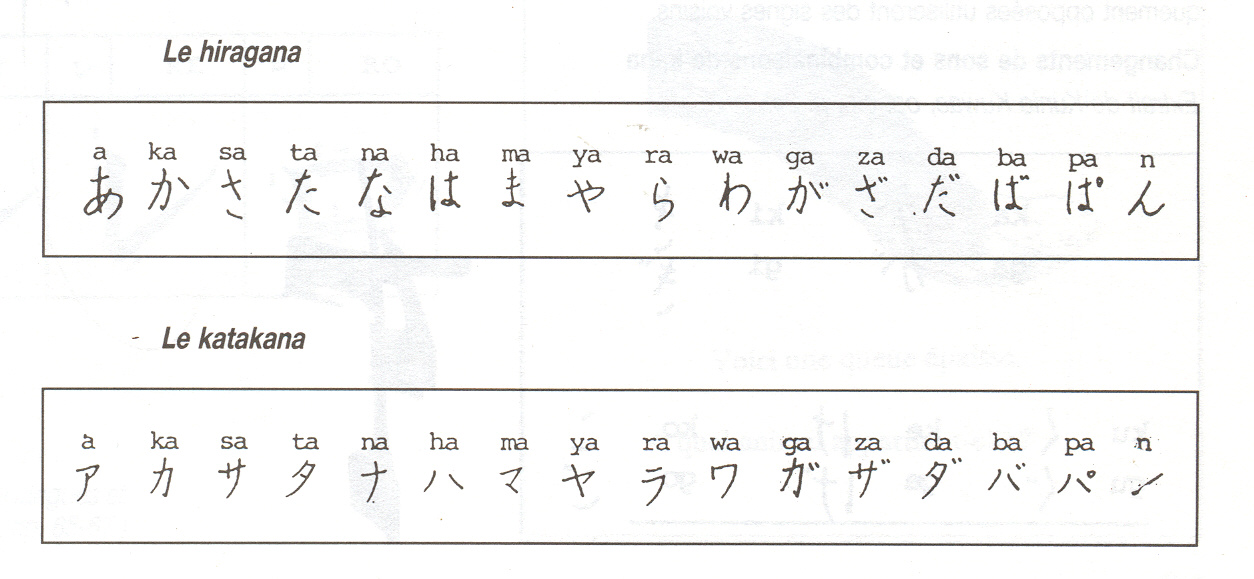 Le hiragana
a ka sa ta na ha ma ya ra wa ga za da ba pa n
あ か さ た な は ま や ら わ が ざ だ ば ぱ ん
Le katakana
a ka sa ta na ha ma ya ra wa ga za da ba pa n
ア カ サ タ ナ ハ マ ヤ ラ ワ ガ ザ ダ バ パ ン